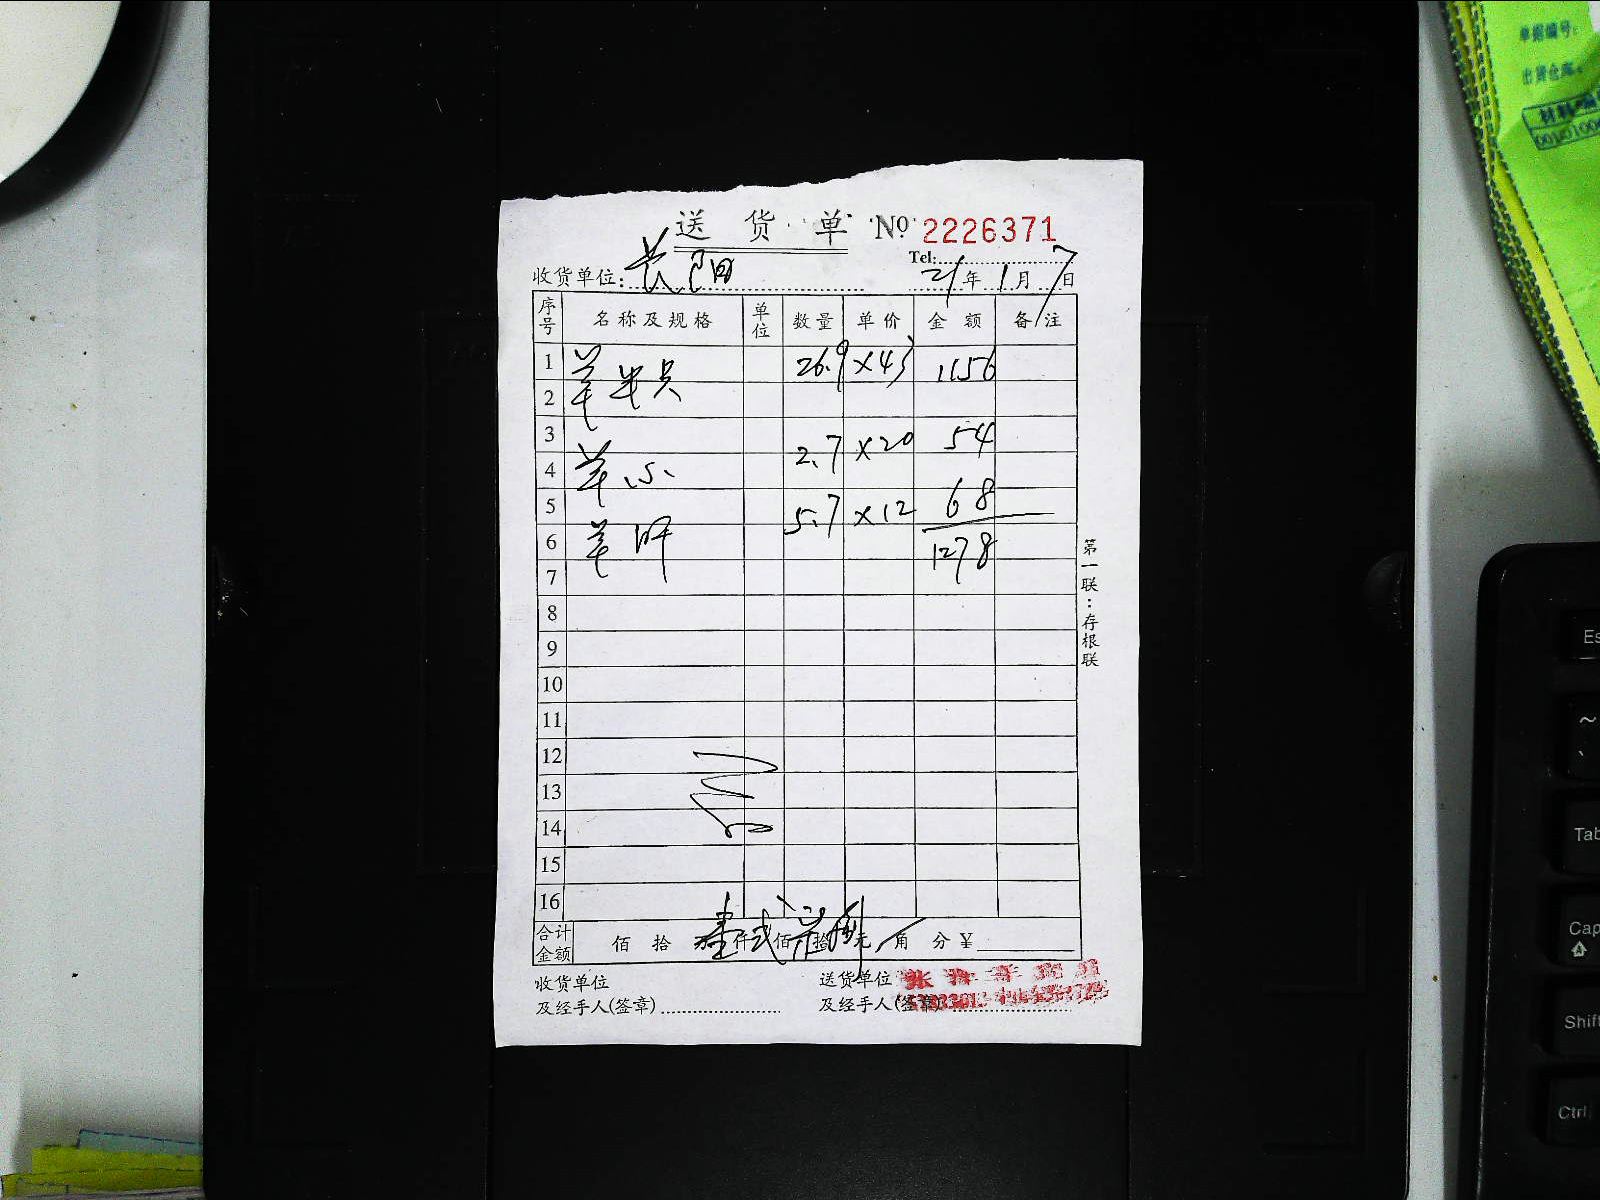 送货单 № 2226371
Tel:
收货单位: 21年1月7日
序号 名称及规格 单位 数量 单价 金额 备注
1 羊半只 26.9 ×43 1156
2
3 54
4 羊心 2.7 ×20
5 5.7 ×12 68
6 羊肝 1278
7
8
9
10
11
12
13
14
15
16
合计金额 佰 拾 万 仟 佰 拾 元 角 分 ¥
壹 弍 柒 捌
收货单位 送货单位
及经手人(签章) 及经手人(签章)
第一联:存根联
单据编号:
出货仓库:
材料编
Es
~
Tab
Cap
Shift
Ctrl